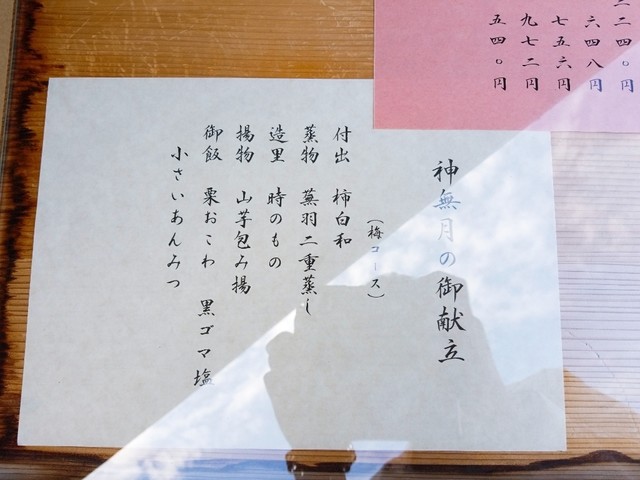 二二四〇円
六四八円
七五六円
九七二円
五四〇円
神無月の御献立
(梅コース)
付出 柿白和
蒸物 蕪羽二重蒸し
造里 時のもの
揚物 山芋包み揚
御飯 栗おこわ 黒ゴマ塩
小さいあんみつ